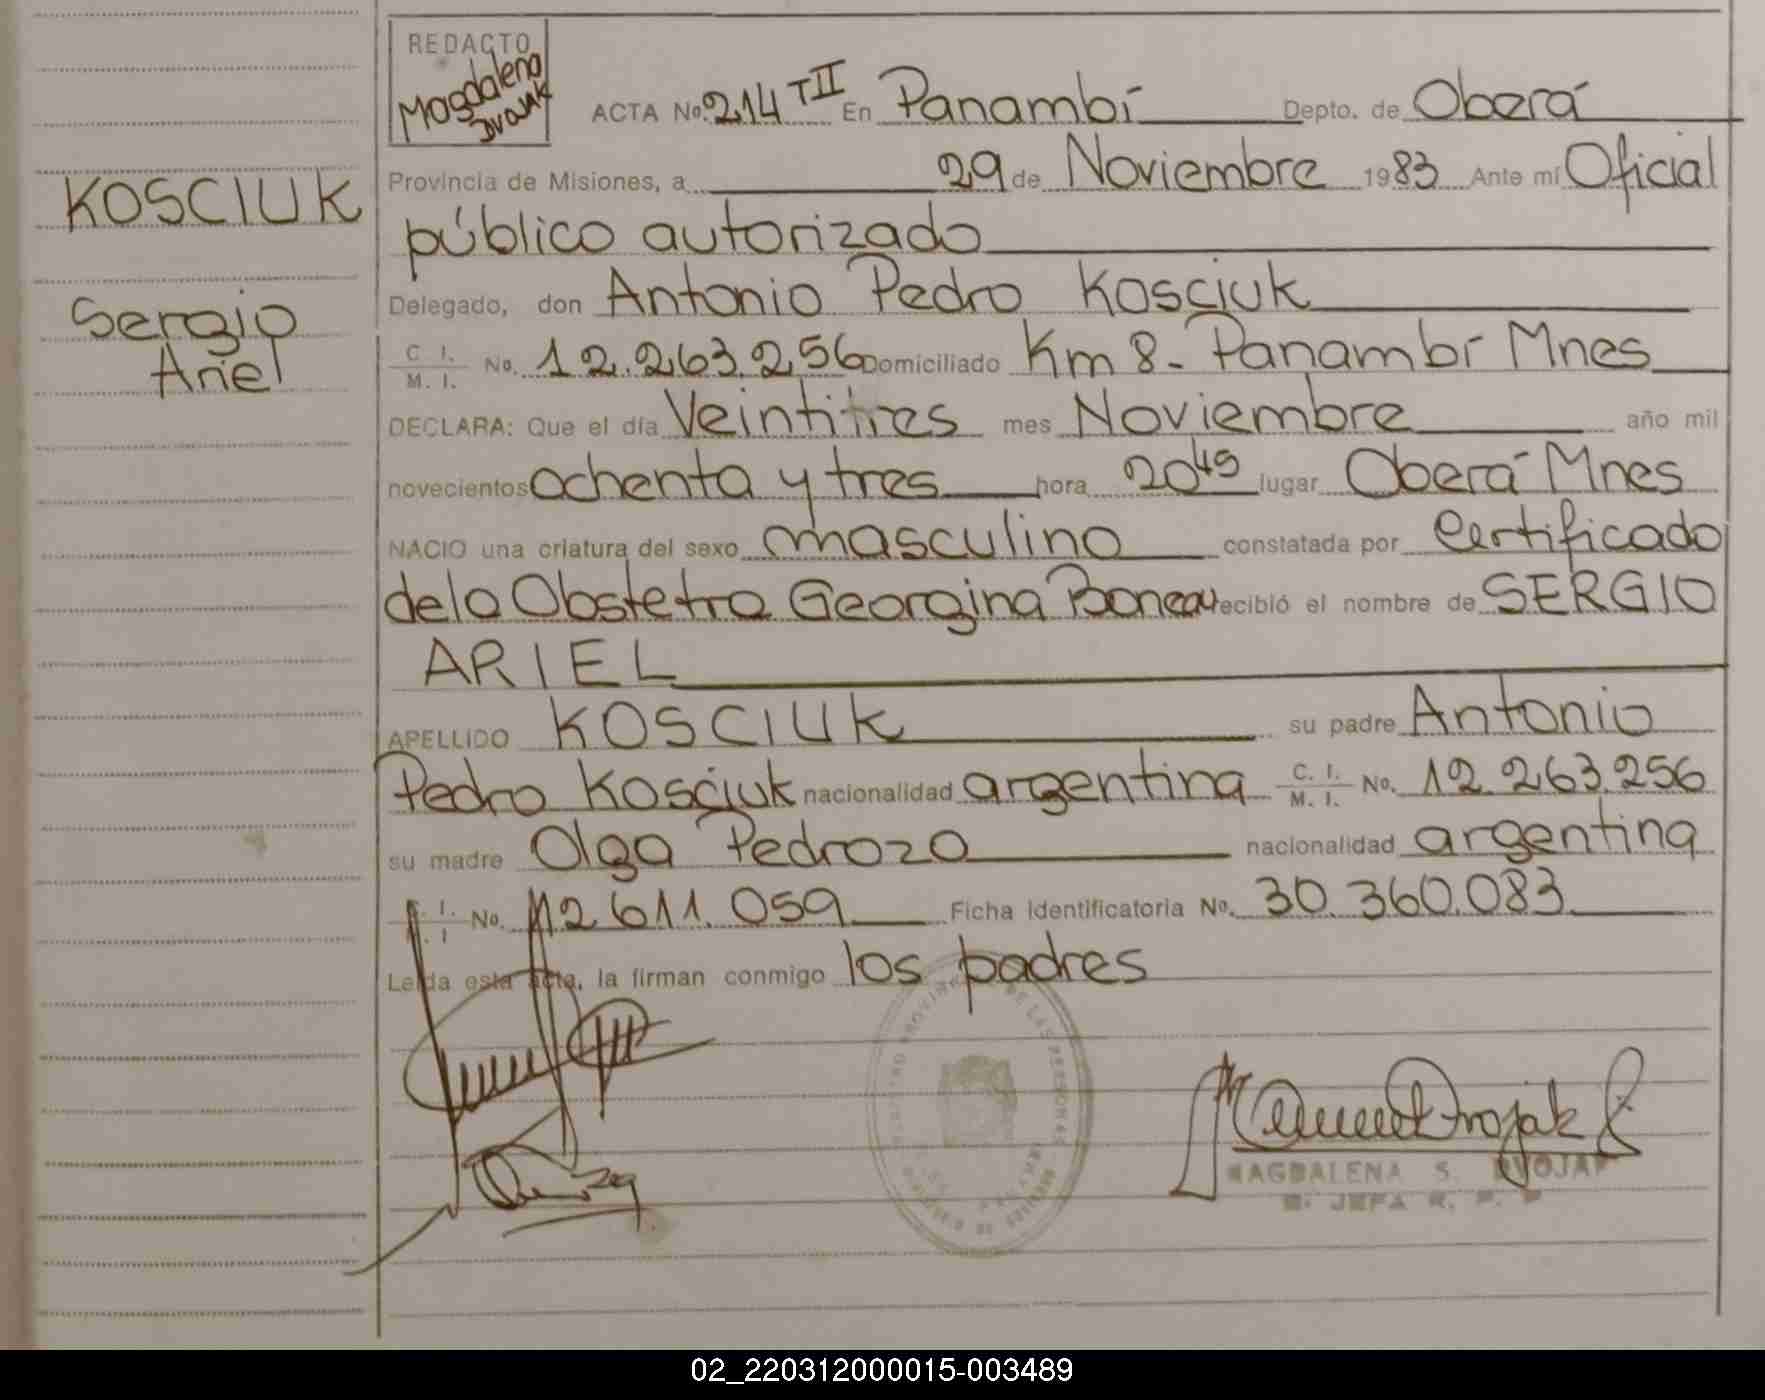 REDACTO
Magdalena
Dvojak
ACTA No. 214 TII En Panambí Depto. de Oberá
Provincia de Misiones, a 29 de Noviembre 1983 Ante mí Oficial
público autorizado
Delegado, don Antonio Pedro Kosciuk
C. I. / M. I. No. 12.263.256 Domiciliado Km 8 - Panambí Mnes
DECLARA: Que el día Veintitres mes Noviembre año mil
novecientos ochenta y tres hora 20 45 lugar Oberá Mnes
NACIO una criatura del sexo masculino constatada por Certificado
de la Obstetra Georgina Boneau recibió el nombre de SERGIO
ARIEL
APELLIDO KOSCIUK su padre Antonio
Pedro Kosciuk nacionalidad argentina C. I. / M. I. No. 12.263.256
su madre Olga Pedrozo nacionalidad argentina
I. / I No. 12 611.059 Ficha Identificatoria No. 30.360.083
Leída esta acta, la firman conmigo los padres
KOSCIUK
Sergio
Ariel
Dvojak
MAGDALENA S. DVOJAK
JEFA R. P.
02_220312000015-003489